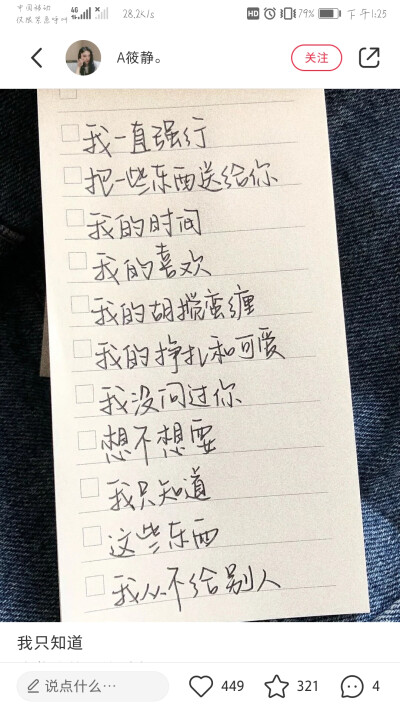 中国移动
仅限紧急呼叫
4G
28.2K/s
HD
79%
下午1:25
A筱静。
关注
我一直强行
把一些东西送给你
我的时间
我的喜欢
我的胡搅蛮缠
我的挣扎和可爱
我没问过你
想不想要
我只知道
这些东西
我从不给别人
我只知道
说点什么…
449
321
4